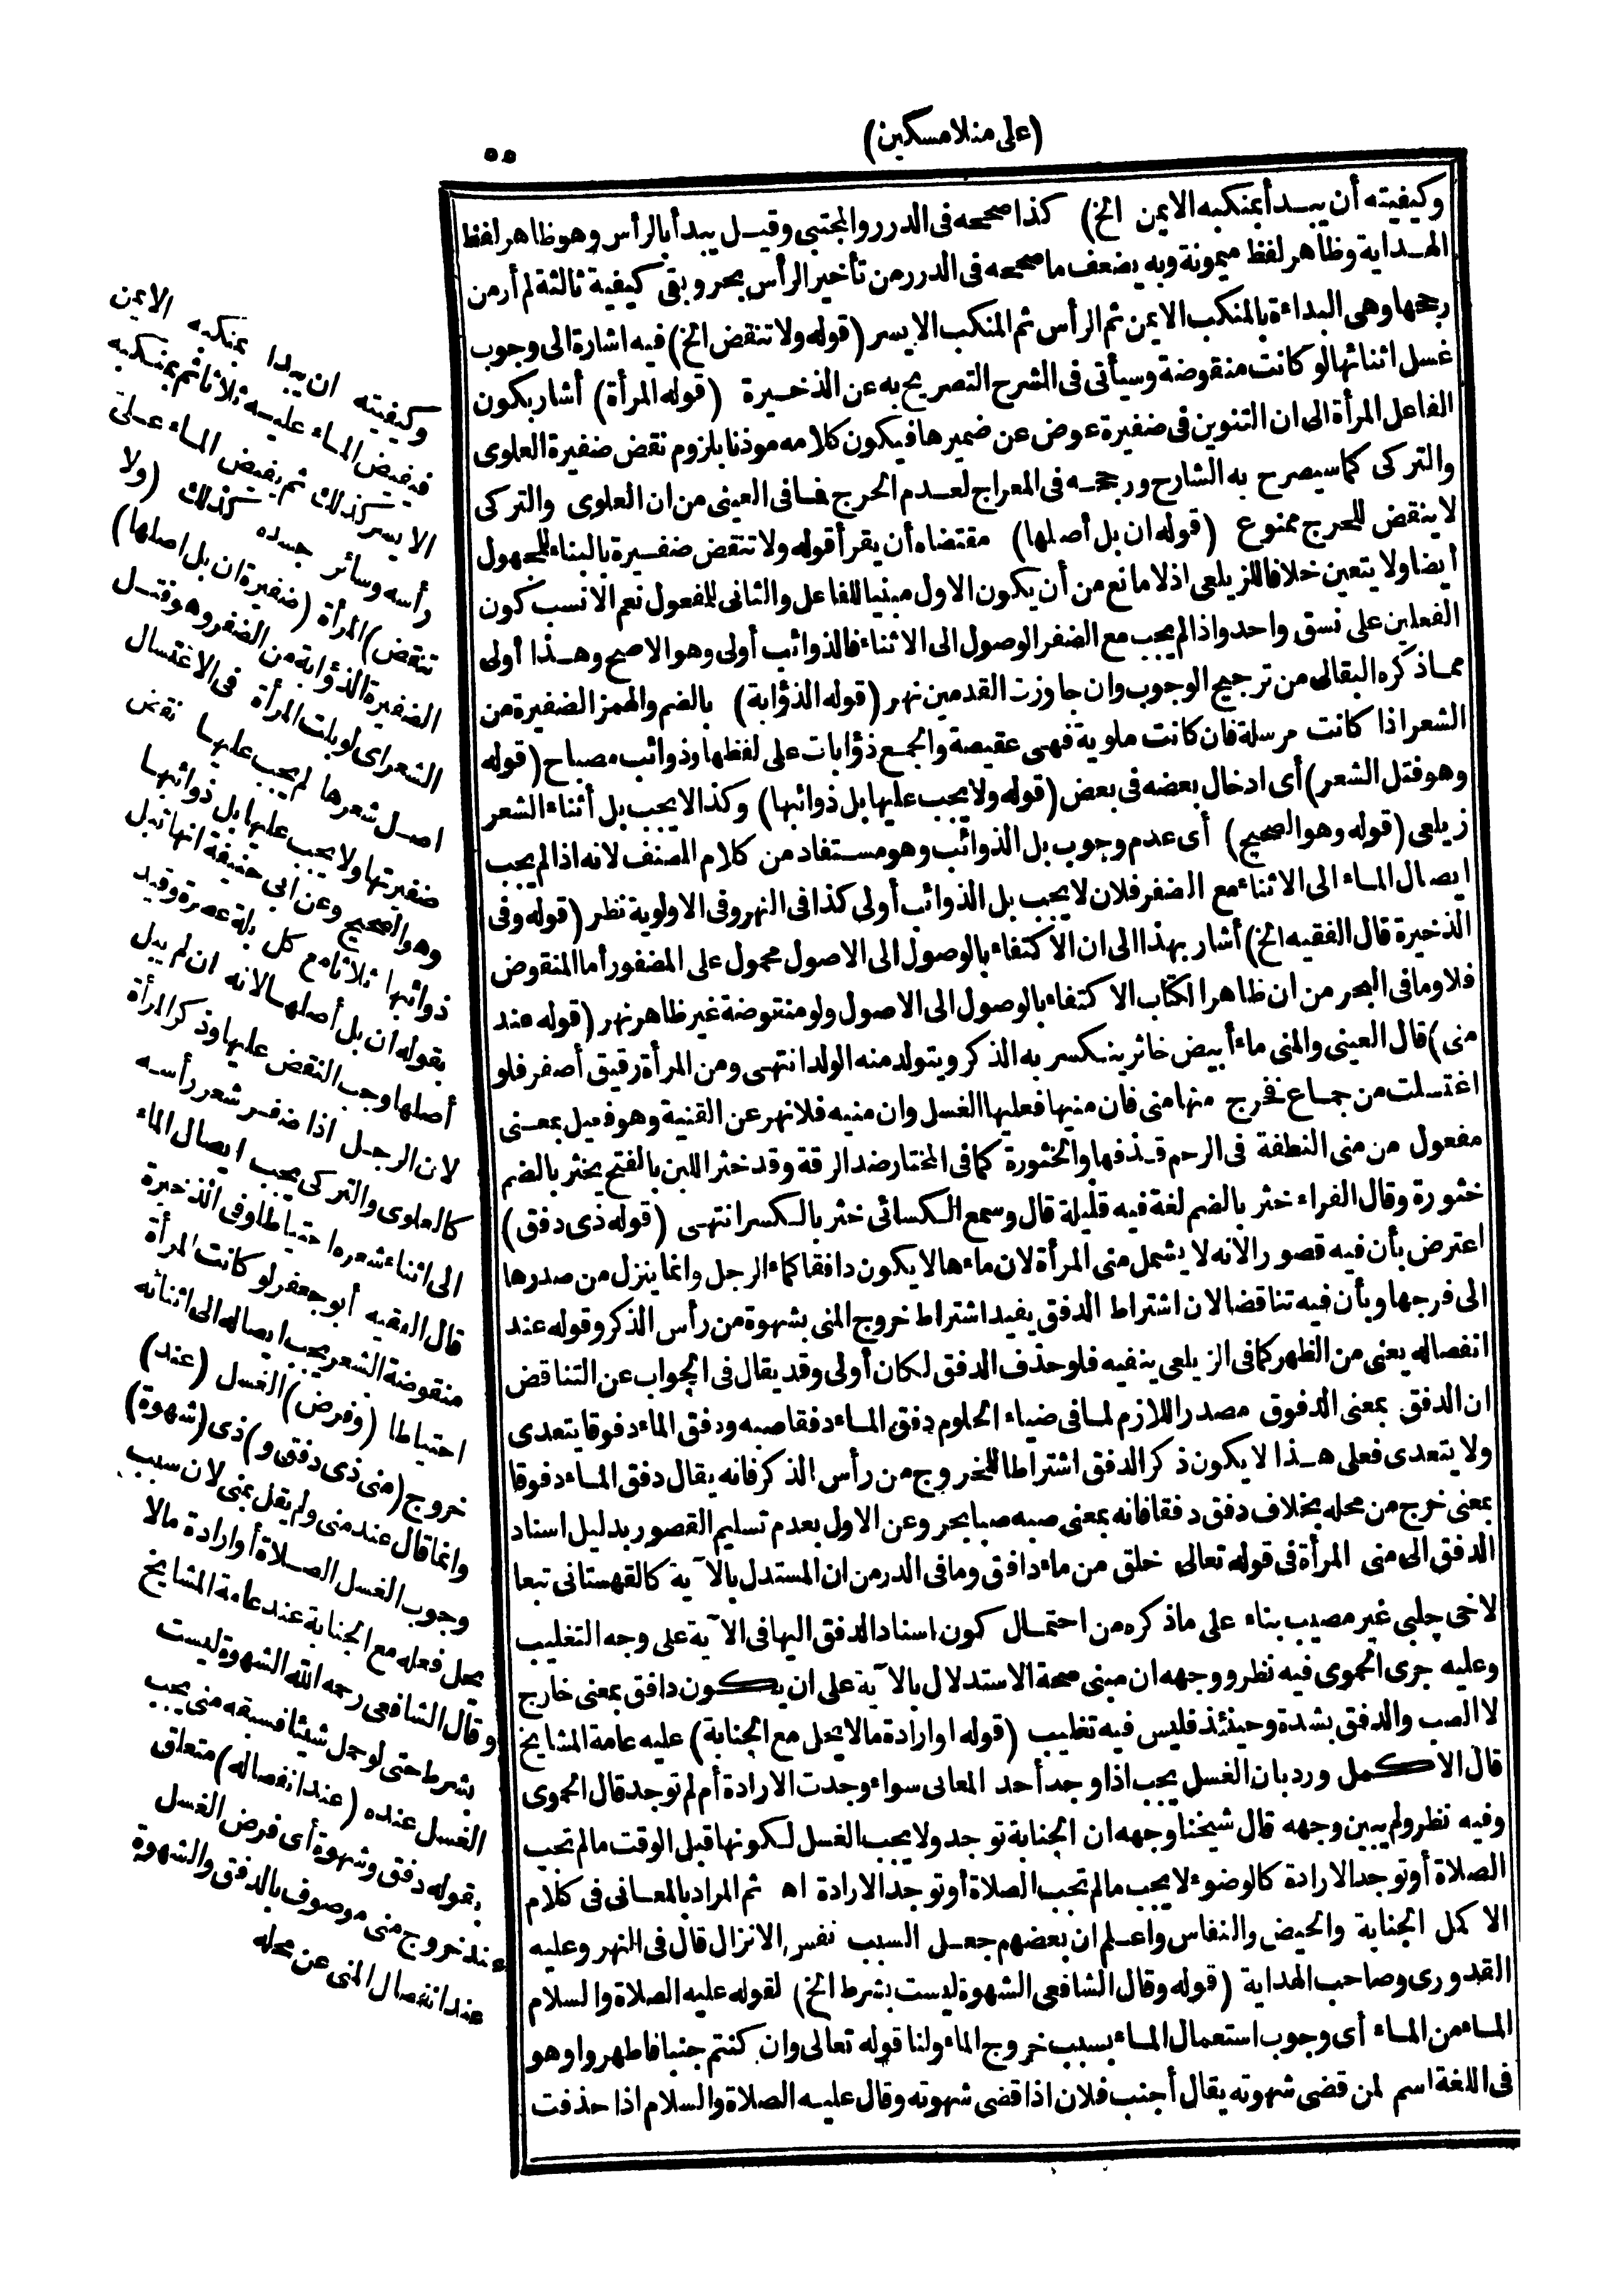 (على منلا مسكين)
٥٥
وكيفيته أن يبدأ بمنكبه الايمن الخ) كذا صححه فى الدرر والمجتبى وقيل يبدأ بالرأس وهو ظاهر لفظ
الهداية وظاهر لفظ ميمونة وبه يضعف ما صححه فى الدرر من تأخير الرأس بحر وبقى كيفية ثالثة لم أر من
رجحها وهى البداءة بالمنكب الايمن ثم الرأس ثم المنكب الايسر (قوله ولا تنقض الخ) فيه اشارة الى وجوب
غسل اثنائها لو كانت منقوضة وسيأتى فى الشرح التصريح به عن الذخيرة (قوله المرأة) أشار بكون
الفاعل المرأة الى ان التنوين فى ضفيرة عوض عن ضميرها فيكون كلامه موذنا بلزوم نقض ضفيرة العلوى
والتركى كما سيصرح به الشارح ورجحه فى المعراج لعدم الحرج فما فى العينى من ان العلوى والتركى
لا ينقض للحرج ممنوع (قوله ان بل أصلها) مقتضاه أن يقرأ قوله ولا تنقض ضفيرة بالبناء للمجهول
أيضا ولا يتعين خلافا للزيلعى اذ لا مانع من أن يكون الاول مبنيا للفاعل والثانى للمفعول نعم الانسب كون
الفعلين على نسق واحد واذا لم يجب مع الضفر الوصول الى الاثناء فالذوائب أولى وهو الاصح وهذا أولى
مما ذكره البقالى من ترجيح الوجوب وان جاوزت القدمين نهر (قوله الذؤابة) بالضم والهمز الضفيرة من
الشعر اذا كانت مرسلة فان كانت ملوية فهى عقيصة والجمع ذؤابات على لفظها وذوائب مصباح (قوله
وهو فتل الشعر) أى ادخال بعضه فى بعض (قوله ولا يجب عليها بل ذوائبها) وكذا لا يجب بل أثناء الشعر
زيلعى (قوله وهو الصحيح) أى عدم وجوب بل الذوائب وهو مستفاد من كلام المصنف لانه اذا لم يجب
ايصال الماء الى الاثناء مع الضفر فلان لا يجب بل الذوائب أولى كذا فى النهر وفى الاولوية نظر (قوله وفى
الذخيرة قال الفقيه الخ) أشار بهذا الى ان الاكتفاء بالوصول الى الاصول محمول على المضفور أما المنقوض
فلا وما فى البحر من ان ظاهر الكتاب الاكتفاء بالوصول الى الاصول ولو منقوضة غير ظاهر نهر (قوله عند
منى) قال العينى والمنى ماء أبيض خاثر ينكسر به الذكر ويتولد منه الولد انتهى ومن المرأة رقيق أصفر فلو
اغتسلت من جماع فخرج منها منى فان منيها فعليها الغسل وان منيه فلا نهر عن القنية وهو فعيل بمعنى
مفعول من منى النطفة فى الرحم قذفها والخثورة كما فى المختار ضد الرقة وقد خثر اللبن بالفتح يخثر بالضم
خثورة وقال الفراء خثر بالضم لغة فيه قليلة قال وسمع الكسائى خثر بالكسر انتهى (قوله ذى دفق)
اعترض بأن فيه قصورا لانه لا يشمل منى المرأة لان ماءها لا يكون دافقا كماء الرجل وانما ينزل من صدرها
الى فرجها وبأن فيه تناقضا لان اشتراط الدفق يفيد اشتراط خروج المنى بشهوة من رأس الذكر وقوله عند
انفصاله يعنى من الظهر كما فى الزيلعى ينفيه فلو حذف الدفق لكان أولى وقد يقال فى الجواب عن التناقض
ان الدفق بمعنى الدفوق مصدر اللازم لما فى ضياء الحلوم دفق الماء دفقا صبه ودفق الماء دفوقا يتعدى
ولا يتعدى فعلى هذا لا يكون ذكر الدفق اشتراطا للخروج من رأس الذكر فانه يقال دفق الماء دفوقا
بمعنى خرج من محله بخلاف دفق دفقا فانه بمعنى صبه صبا بحر وعن الاول بعدم تسليم القصور بدليل اسناد
الدفق الى منى المرأة فى قوله تعالى خلق من ماء دافق وما فى الدر من ان المستدل بالآية كالقهستانى تبعا
لاخى چلبى غير مصيب بناء على ما ذكره من احتمال كون اسناد الدفق اليها فى الآية على وجه التغليب
وعليه جرى الحموى فيه نظر ووجهه ان مبنى صحة الاستدلال بالآية على ان يكون دافق بمعنى خارج
لا الصب والدفق بشدة وحينئذ فليس فيه تغليب (قوله او ارادة ما لا يحل مع الجنابة) عليه عامة المشايخ
قال الاكمل ورد بان الغسل يجب اذا وجد أحد المعانى سواء وجدت الارادة أم لم توجد قال الحموى
وفيه نظر ولم يبين وجهه قال شيخنا وجهه ان الجنابة توجد ولا يجب الغسل لكونها قبل الوقت ما لم تجب
الصلاة أو توجد الارادة كالوضوء لا يجب ما لم تجب الصلاة أو توجد الارادة اه ثم المراد بالمعانى فى كلام
الاكمل الجنابة والحيض والنفاس واعلم ان بعضهم جعل السبب نفس الانزال قال فى النهر وعليه
القدورى وصاحب الهداية (قوله وقال الشافعى الشهوة ليست بشرط الخ) لقوله عليه الصلاة والسلام
الماء من الماء أى وجوب استعمال الماء بسبب خروج الماء ولنا قوله تعالى وان كنتم جنبا فاطهروا وهو
فى اللغة اسم لمن قضى شهوته يقال أجنب فلان اذا قضى شهوته وقال عليه الصلاة والسلام اذا حذفت
وكيفيته ان يبدا بمنكبه الايمن
فيفيض الماء عليه ثلاثا ثم بمنكبه
الايسر كذلك ثم يفيض الماء على
رأسه وسائر جسده كذلك (ولا
تنقض) المرأة (ضفيرة ان بل اصلها)
الضفيرة الذؤابة من الضفر وهو فتل
الشعر اى لو بلت المرأة فى الاغتسال
اصل شعرها لم يجب عليها نقض
ضفيرتها ولا يجب عليها بل ذوائبها
وهو الصحيح وعن ابى حنيفة انها تبل
ذوائبها ثلاثا مع كل بلة عصرة وقيد
بقوله ان بل أصلها لانه ان لم يبل
أصلها وجب النقض عليها وذكر المرأة
لان الرجل اذا ضفر شعر رأسه
كالعلوى والتركى يجب ايصال الماء
الى اثناء شعره احتياطا وفى الذخيرة
قال الفقيه أبو جعفر لو كانت المرأة
منقوضة الشعر يجب ايصاله الى اثنائه
احتياطا (وفرض) الغسل (عند)
خروج (منى ذى دفق و) ذى (شهوة)
وانما قال عند منى ولم يقل بمنى لان سبب
وجوب الغسل الصلاة أو ارادة ما لا
يحل فعله مع الجنابة عند عامة المشايخ
وقال الشافعى رحمه الله الشهوة ليست
بشرط حتى لو حمل شيئا فسبقه منى يجب
الغسل عنده (عند انفصاله) متعلق
بقوله دفق وشهوة أى فرض الغسل
عند خروج منى موصوف بالدفق والشهوة
عند انفصال المنى عن محله